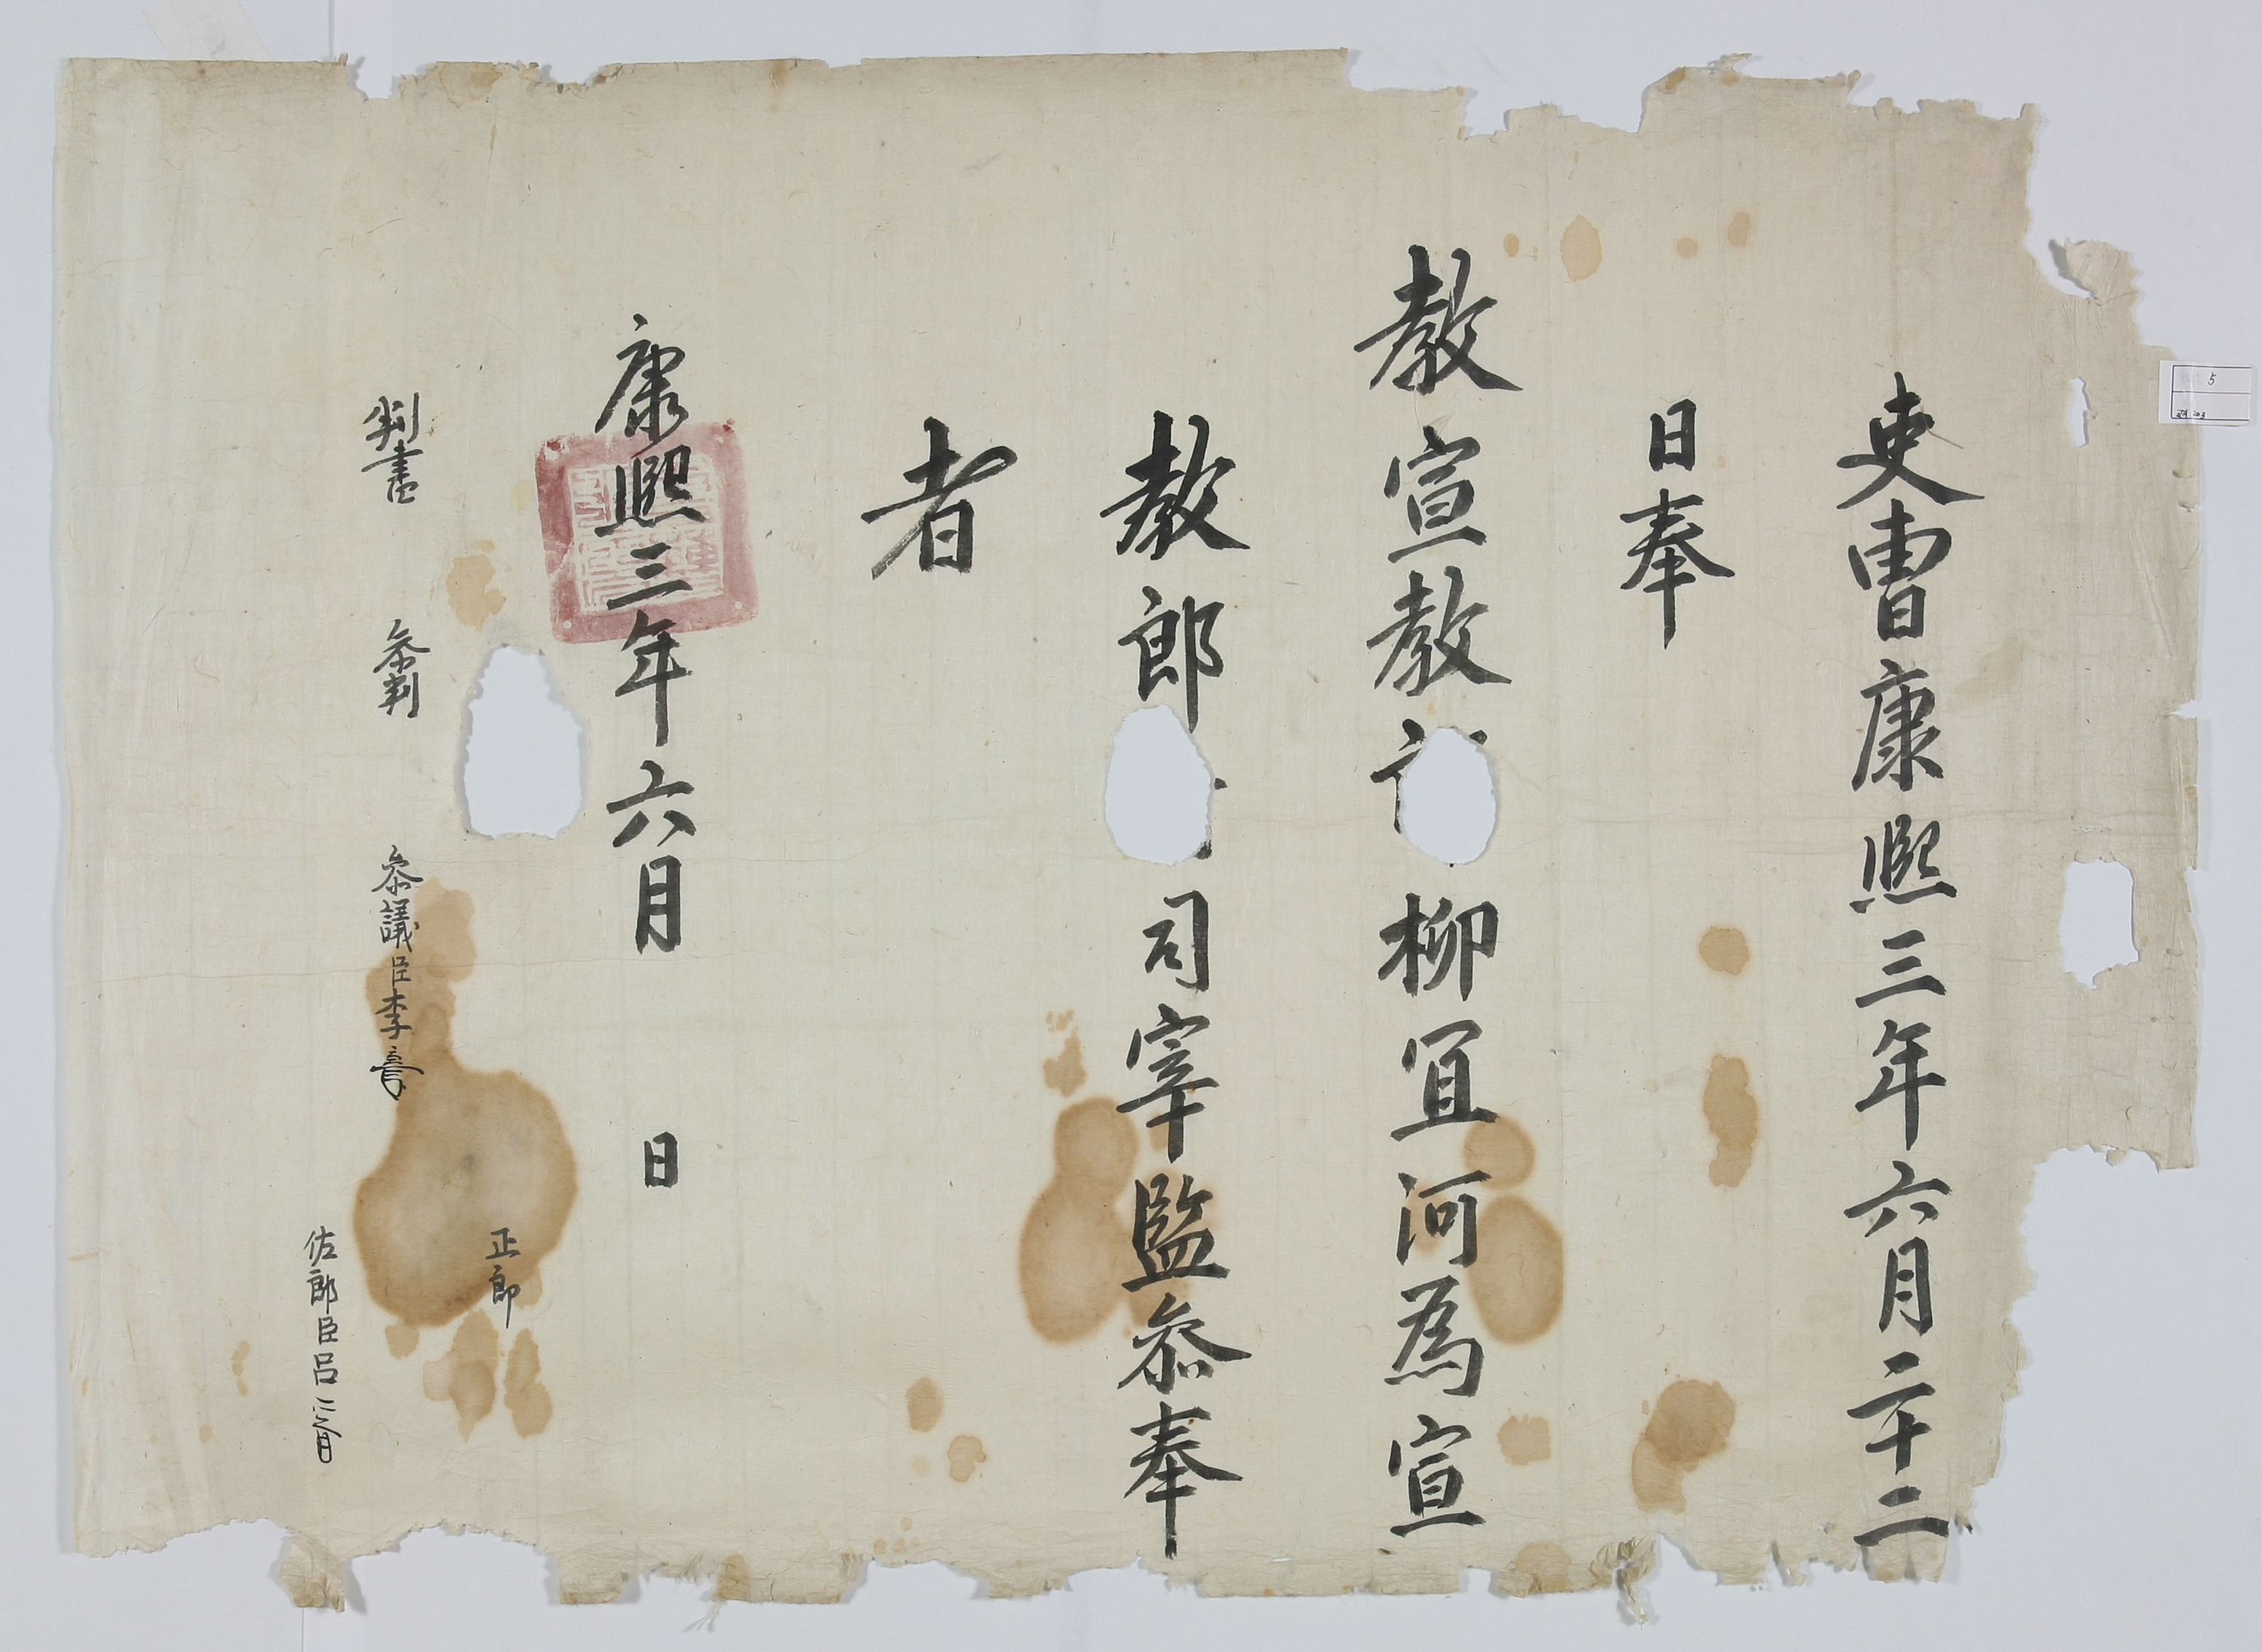 吏曹康熙三年六月二十二
日奉
教宣教柳宜河為宣
教郎司宰監叅奉
者
康熙三年六月 日
判書 叅判 叅議臣李
正郎
佐郎臣呂
5